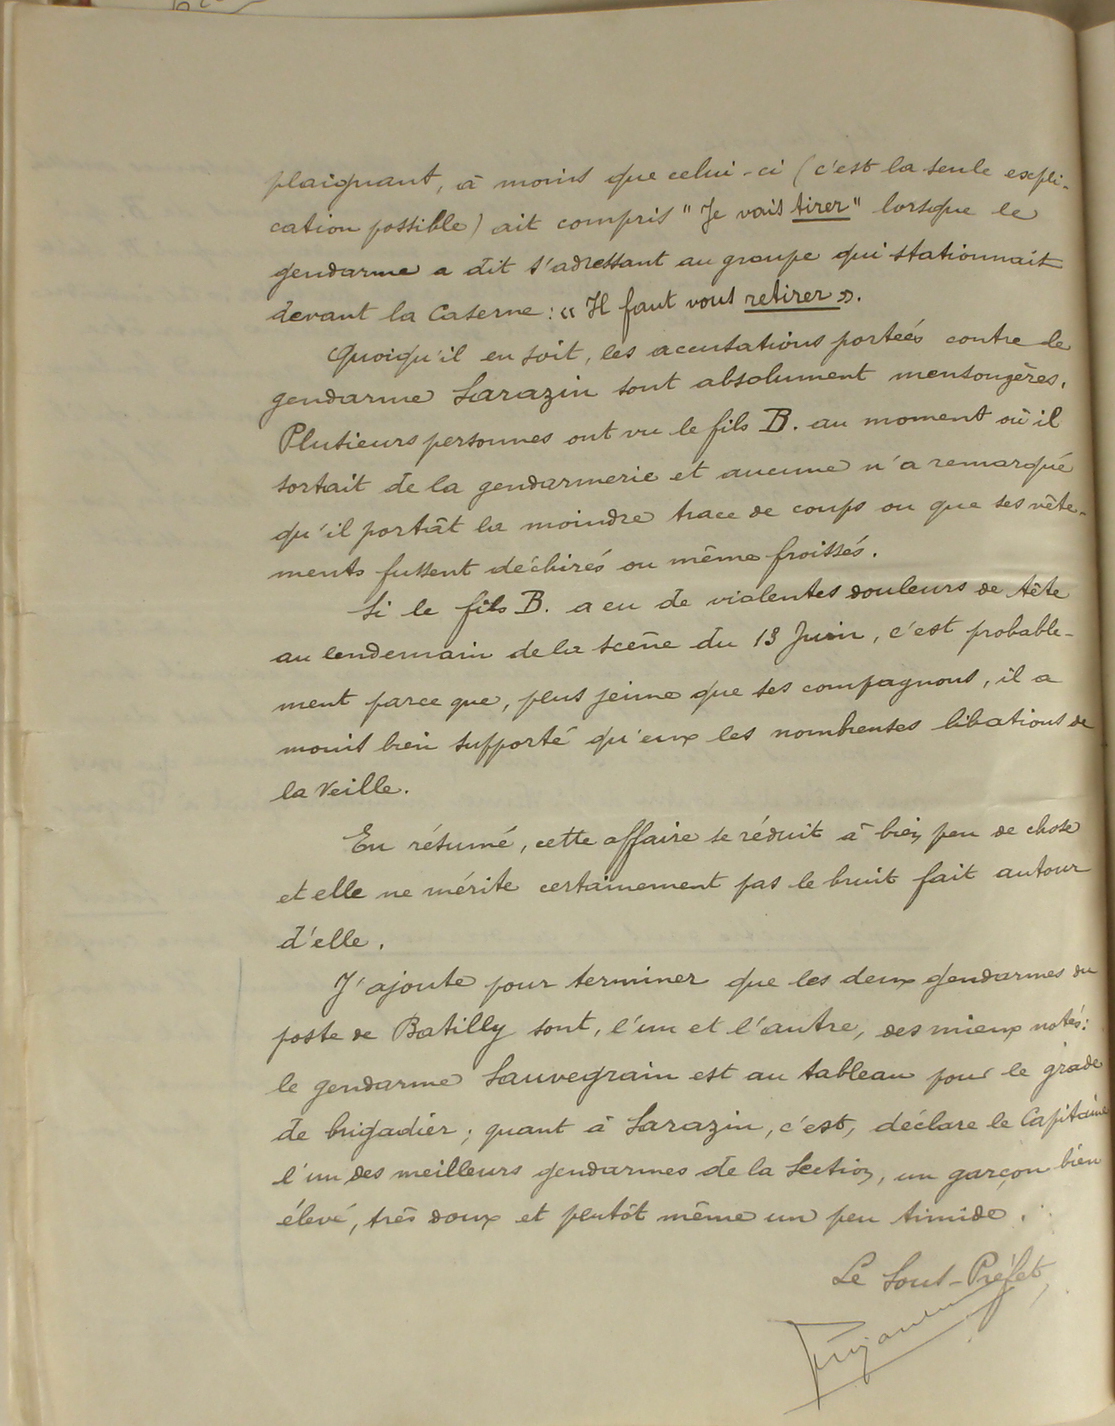 plaignant, à moins que celui-ci (c'est la seule expli-
cation possible) ait compris "Je vais tirer" lorsque le
gendarme a dit s'adressant au groupe qui stationnait
devant la Caserne : « Il faut vous retirer ».
Quoiqu'il en soit, les accusations portées contre le
gendarme Sarazin sont absolument mensongères.
Plusieurs personnes ont vu le fils B. au moment où il
sortait de la gendarmerie et aucune n'a remarqué
qu'il portât la moindre trace de coups ou que ses vête-
ments fussent déchirés ou même froissés.
Si le fils B. a eu de violentes douleurs de tête
au lendemain de la scène du 13 Juin, c'est probable-
ment parce que, plus jeune que ses compagnons, il a
moins bien supporté qu'eux les nombreuses libations de
la Veille.
En résumé, cette affaire se réduit à bien peu de chose
et elle ne mérite certainement pas le bruit fait autour
d'elle.
J'ajoute pour terminer que les deux gendarmes du
poste de Batilly sont, l'un et l'autre, des mieux notés :
le gendarme Sauvegrain est au tableau pour le grade
de brigadier ; quant à Sarazin, c'est, déclare le Capitaine
l'un des meilleurs gendarmes de la Section, un garçon bien
élevé, très doux et plutôt même un peu timide.
Le Sous-Préfet,